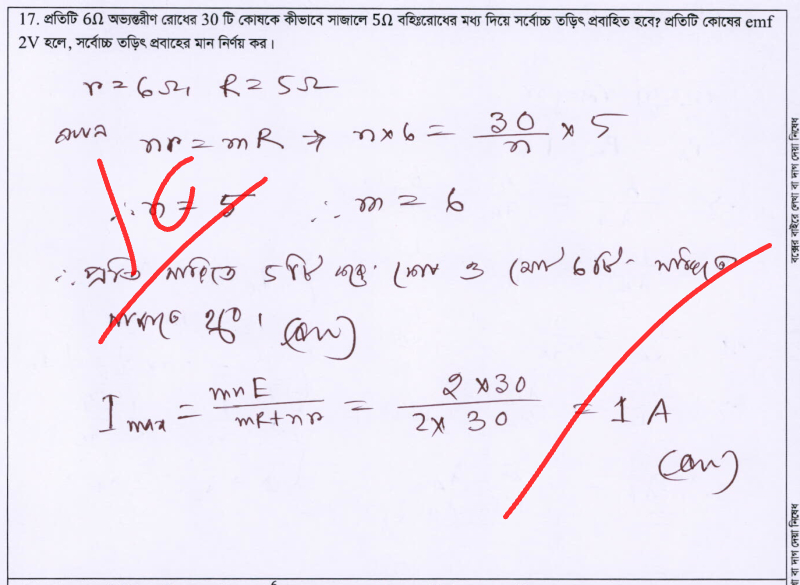 17. প্রতিটি 6Ω অভ্যন্তরীণ রোধের 30 টি কোষকে কীভাবে সাজালে 5Ω বহিঃরোধের মধ্য দিয়ে সর্বোচ্চ তড়িৎ প্রবাহিত হবে? প্রতিটি কোষের emf
2V হলে, সর্বোচ্চ তড়িৎ প্রবাহের মান নির্ণয় কর।
r = 6Ω, R = 5Ω
nr = mR → n×6 = 30/n × 5
∴ n = 5 ∴ m = 6
10
∴ প্রতি সারিতে 5টি ও 6টি
(Ans)
I max = mnE/mR+nr = 2×30/2×30 = 1 A
(Ans)
বক্সের বাইরে লেখা বা দাগ দেয়া নিষেধ
বা দাগ দেয়া নিষেধ